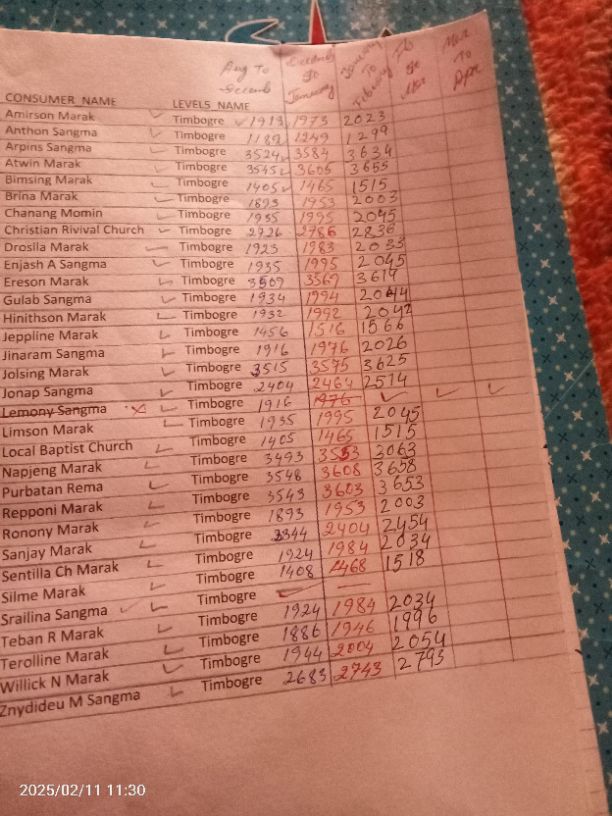 Aug To December January To February Feb Mar Mar To Apr
CONSUMER_NAME LEVEL5_NAME January
Amirson Marak ✓ Timbogre ✓ 1913 1973 2023
Anthon Sangma ✓ Timbogre 1189 1249 1299
Arpins Sangma ✓ Timbogre 3524 3584 3634
Atwin Marak ✓ Timbogre 3545 3605 3655
Bimsing Marak ✓ Timbogre 1405 1465 1515
Brina Marak ✓ Timbogre 1893 1953 2003
Chanang Momin ✓ Timbogre 1935 1995 2045
Christian Rivival Church ✓ Timbogre 2726 2786 2836
Drosila Marak ✓ Timbogre 1923 1983 2033
Enjash A Sangma ✓ Timbogre 1935 1995 2045
Ereson Marak ✓ Timbogre 3509 3569 3619
Gulab Sangma ✓ Timbogre 1934 1994 2044
Hinithson Marak ✓ Timbogre 1932 1992 2042
Jeppline Marak ✓ Timbogre 1456 1516 1566
Jinaram Sangma ✓ Timbogre 1916 1976 2026
Jolsing Marak ✓ Timbogre 3515 3575 3625
Jonap Sangma ✓ Timbogre 2404 2464 2514
Lemony Sangma ✗ ✓ Timbogre 1916 1976 ✓ ✓ ✓
Limson Marak ✓ Timbogre 1935 1995 2045
Local Baptist Church ✓ Timbogre 1405 1465 1515
Napjeng Marak ✓ Timbogre 3493 3553 3063
Purbatan Rema ✓ Timbogre 3548 3608 3658
Repponi Marak ✓ Timbogre 3543 3603 3653
Ronony Marak ✓ Timbogre 1893 1953 2003
Sanjay Marak ✓ Timbogre 3344 2404 2454
Sentilla Ch Marak ✓ Timbogre 1924 1984 2034
Silme Marak ✓ Timbogre 1408 1468 1518
Srailina Sangma ✓ ✓ Timbogre ✓ —
Teban R Marak ✓ Timbogre 1924 1984 2034
Terolline Marak ✓ Timbogre 1886 1946 1996
Willick N Marak ✓ Timbogre 1944 2004 2054
Znydideu M Sangma ✓ Timbogre 2683 2743 2793
2025/02/11 11:30